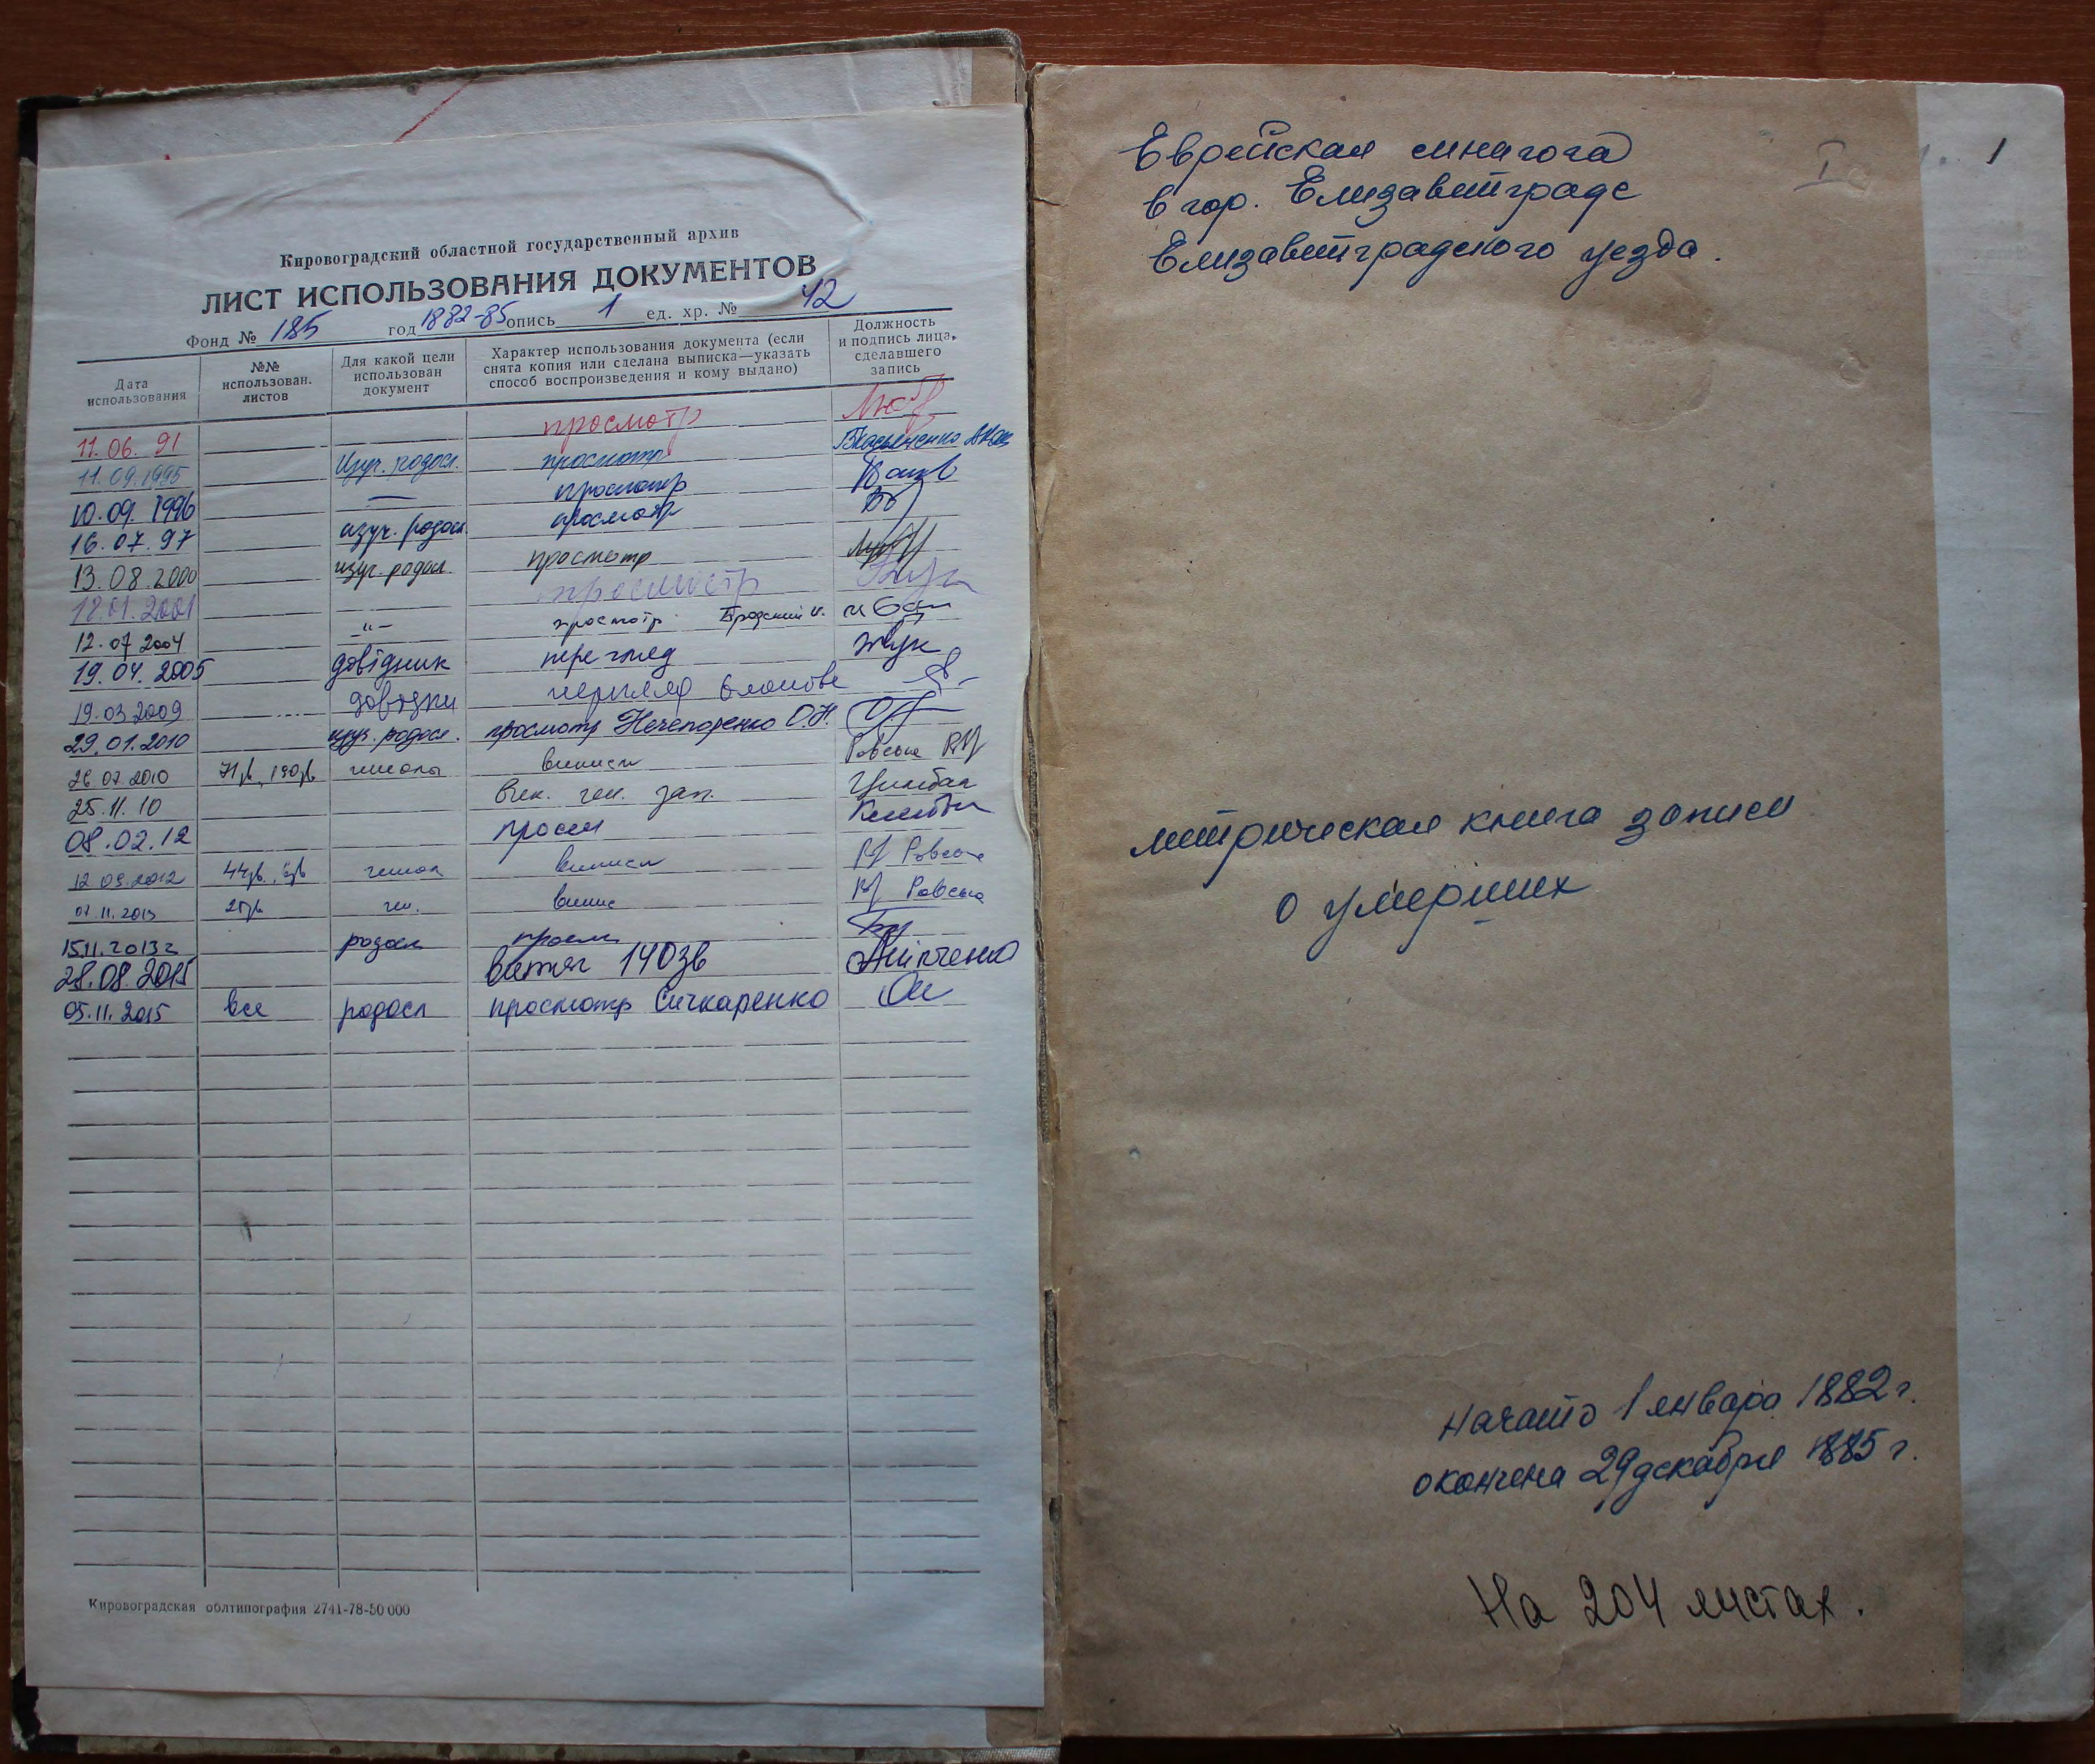 Кировоградский областной государственный архив
ЛИСТ ИСПОЛЬЗОВАНИЯ ДОКУМЕНТОВ
Фонд № 185 год 1882-85 опись 1 ед. хр. № 42
Дата использования
№№ использован. листов
Для какой цели использован документ
Характер использования документа (если снята копия или сделана выписка—указать способ воспроизведения и кому выдано)
Должность и подпись лица, сделавшего запись
11.06.91 просмотр
11.09.1995 Изуч. родосл. просмотр
10.09.1996 — просмотр
16.07.97 изуч. родосл. просмотр
13.08.2000 изуч. родосл. просмотр
18.01.2001 просмотр
12.07 2004 –"– просмотр Бродский И.
19.04.2005 довідник перегляд Жук
19.03 2009 довідки перегляд
29.01.2010 изуч. родосл. просмотр Нечепоренко О.Н.
26 07 2010 71зв, 190зв виписи Ровська
25.11.10 ген. зап. Цимбал
08.02.12 просм
12 09.2012 44зв. виписи Ровська
07.11.2013 ген. випис Ровська
15.11.2013г родосл просм
28.08.2015 витяг 140зв
05.11.2015 все родосл просмотр Сичкаренко
Кировоградская облтипография 2741-78-50 000
1
Еврейская синагога
в гор. Елизаветграде
Елизаветградского уезда.
метрическая книга записи
о умерших
начато 1 января 1882 г.
окончена 29 декабря 1885 г.
На 204 листах.